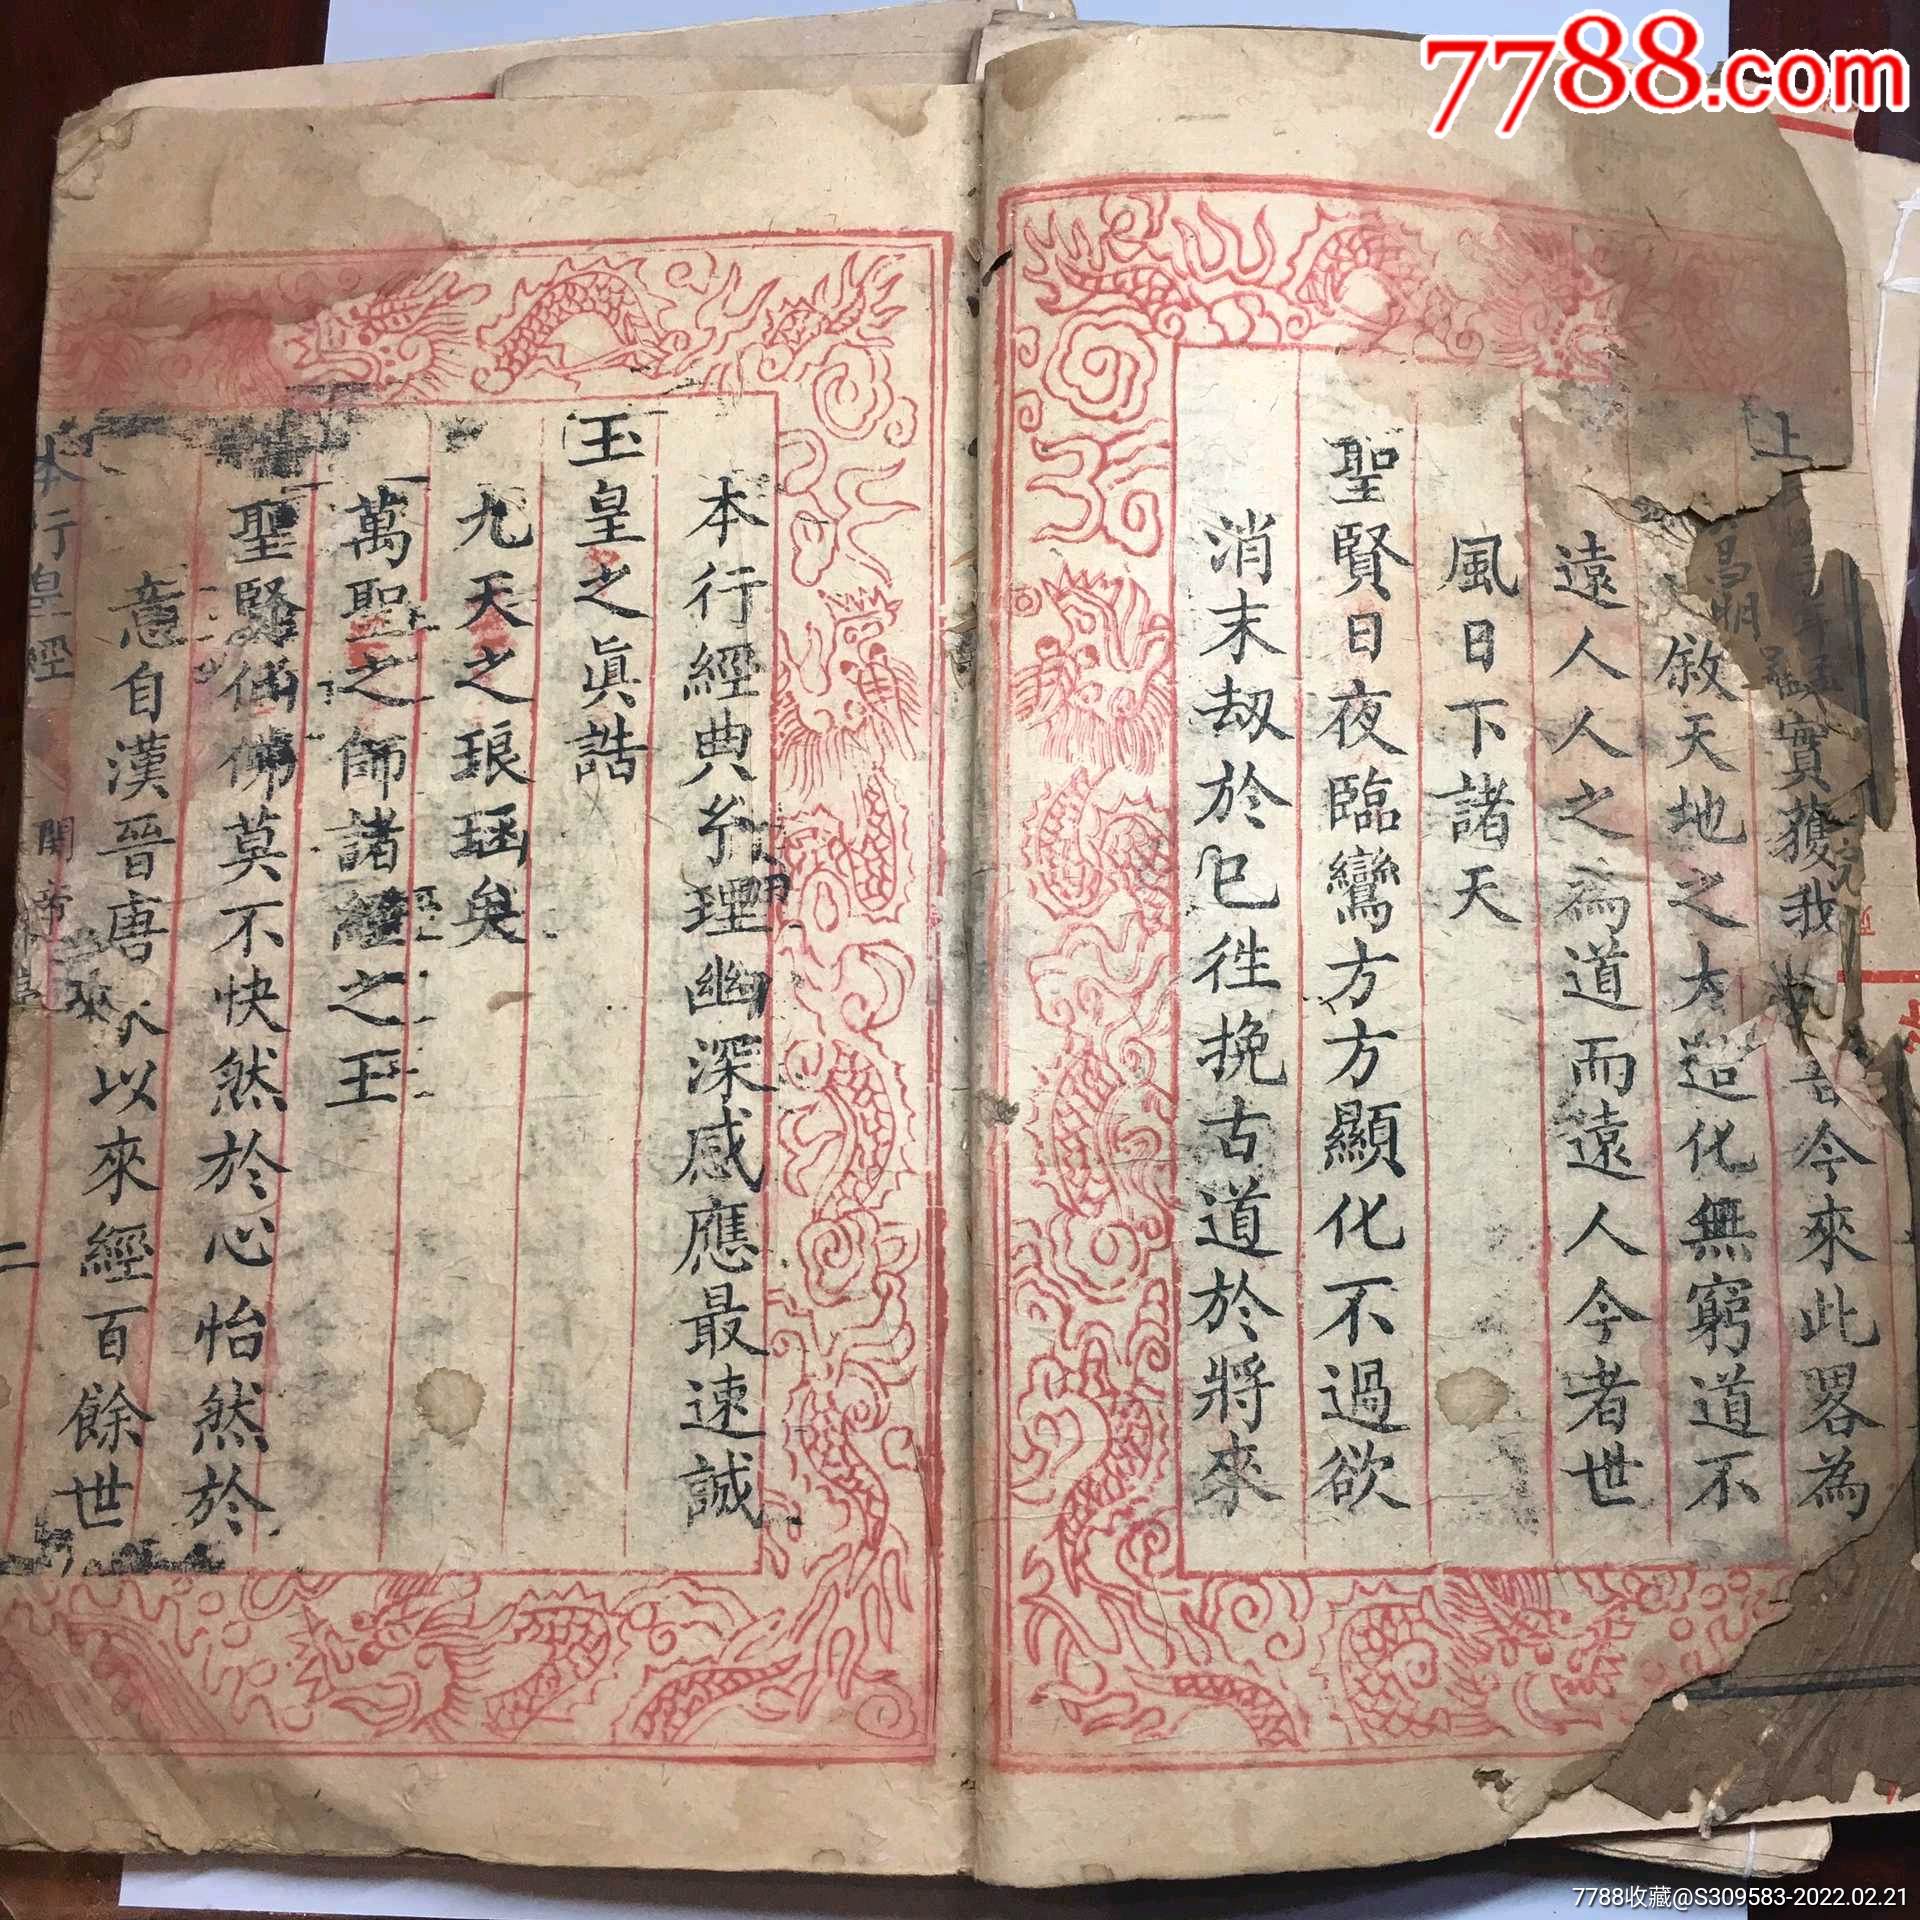 7788.com
上
實蓛我
今來此畧為
敘天地之大造化無窮道不
遠人人之為道而遠人今者世
風日下諸天
聖賢日夜臨鸞方方顯化不過欲
消末刼於已徃挽古道於將來
本行經典
理幽深感應最速誠
玉皇之眞誥
九天之琅璚矣
萬聖之師諸經之王
聖賢仙佛莫不快然於心怡然於
意自漢晉唐
以來經百餘世
本行皇經
二
7788收藏@S309583-2022.02.21